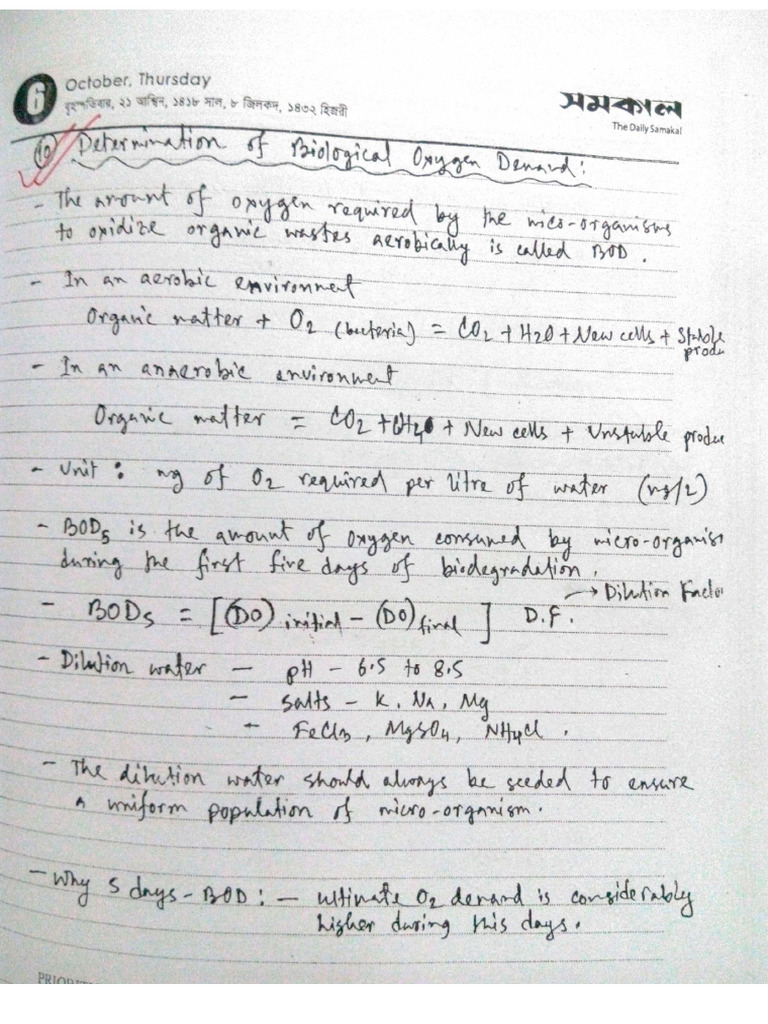 6
October, Thursday
বৃহস্পতিবার, ২১ আশ্বিন, ১৪১৮ সাল, ৮ জিলকদ, ১৪৩২ হিজরী
সমকাল
The Daily Samakal
10 Determination of Biological Oxygen Demand:
- The amount of oxygen required by the mico-organisms
to oxidize organic wastes aerobically is called BOD.
- In an aerobic environment
Organic matter + O2 (bacteria) = CO2 + H2O + New cells + Stable
produ
- In an anaerobic environment
Organic matter = CO2 + CH4 + New cells + Unstable produc
- Unit : mg of O2 required per litre of water (mg/L)
- BOD5 is the amount of oxygen consumed by micro-organis
during the first five days of biodegradation.
→ Dilution Factor
- BOD5 = [(DO) initial - (DO) final] D.F.
- Dilution water - pH - 6.5 to 8.5
- Salts - K, Na, Mg
- FeCl3, MgSO4, NH4Cl.
- The dilution water should always be seeded to ensure
a uniform population of micro-organism.
- Why 5 days - BOD : - ultimate O2 demand is considerably
higher during this days.